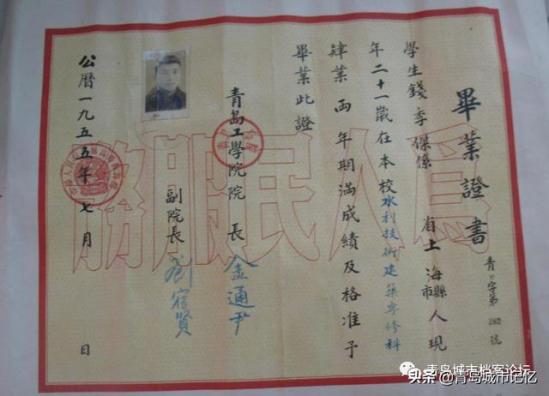 畢業證書
字第號
學生錢季傑係 省上海縣市人現
年二十一歲在本校水利技術建築專修科
肄業兩年期滿成績及格准予
畢業此證
青島工學院院長 金通尹
副院長 劉宿賢
公曆一九五五年七月 日
為人民服務
青岛城市档案论坛
头条@青岛城市记忆